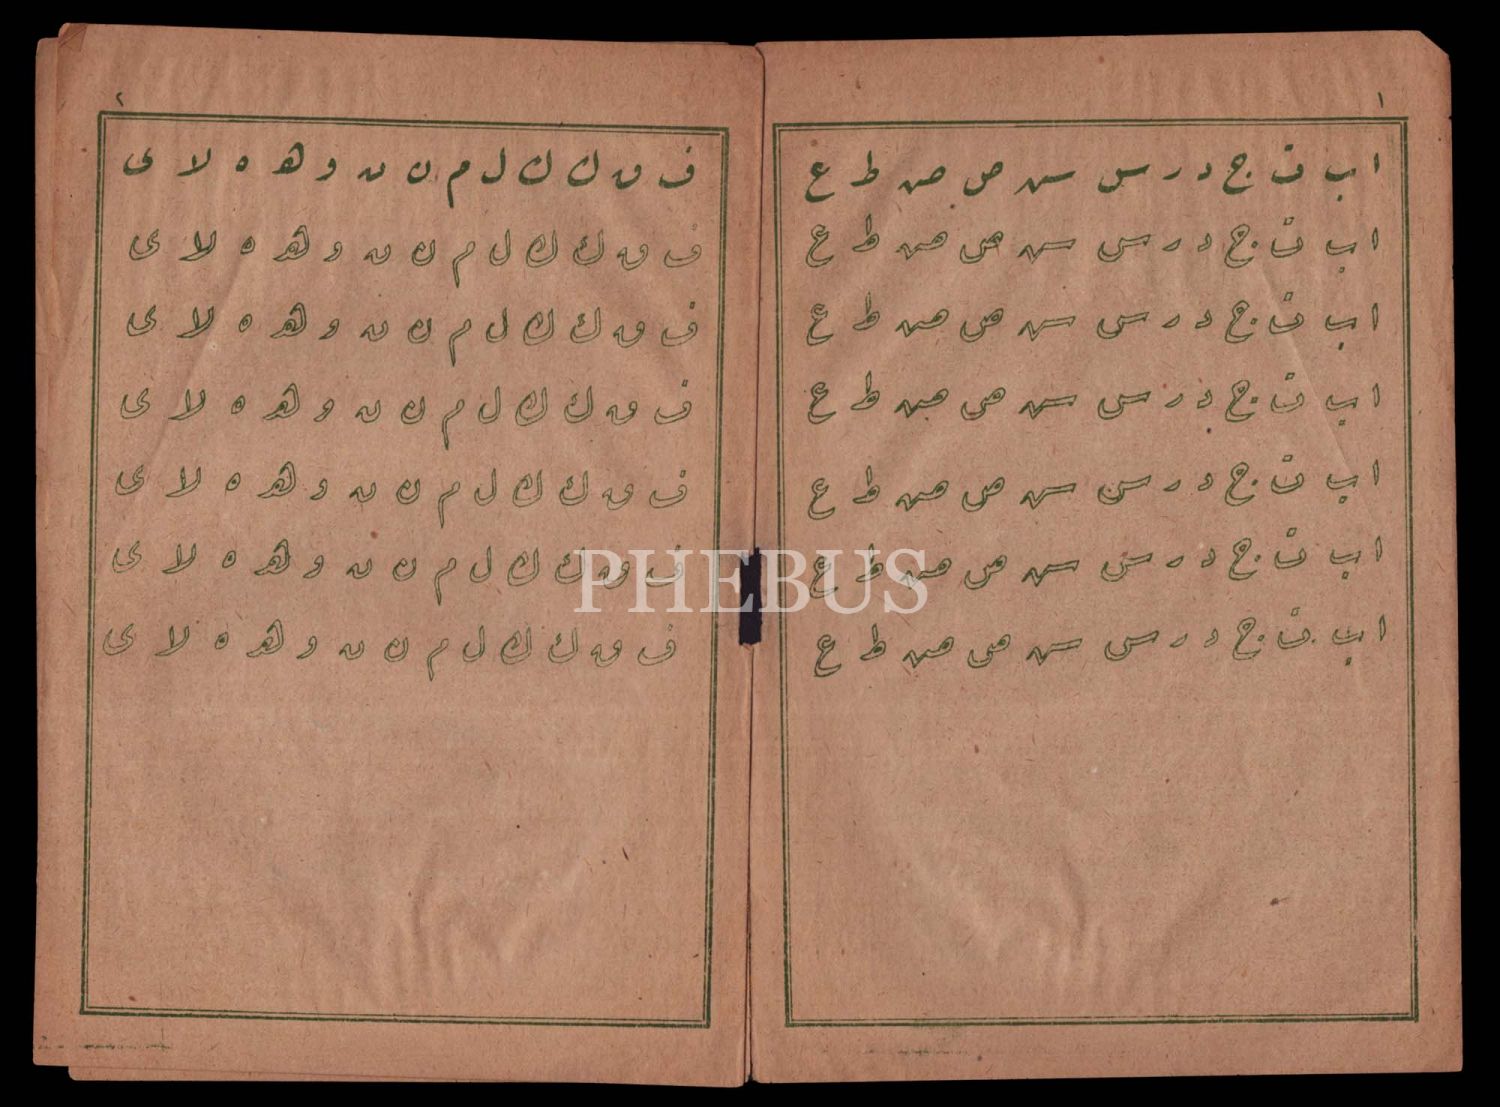 ١
ا ب ت ج د ر س س ص ص ط ع
ا ب ت ج د ر س س ص ص ط ع
ا ب ت ج د ر س س ص ص ط ع
ا ب ت ج د ر س س ص ص ط ع
ا ب ت ج د ر س س ص ص ط ع
ا ب ت ج د ر س س ص ص ط ع
ا ب ت ج د ر س س ص ص ط ع
٢
ف ق ك ك ل م ن ن و هـ ه لا ى
ف ق ك ك ل م ن ن و هـ ه لا ى
ف ق ك ك ل م ن ن و هـ ه لا ى
ف ق ك ك ل م ن ن و هـ ه لا ى
ف ق ك ك ل م ن ن و هـ ه لا ى
ف ق ك ك ل م ن ن و هـ ه لا ى
ف ق ك ك ل م ن ن و هـ ه لا ى
PHEBUS